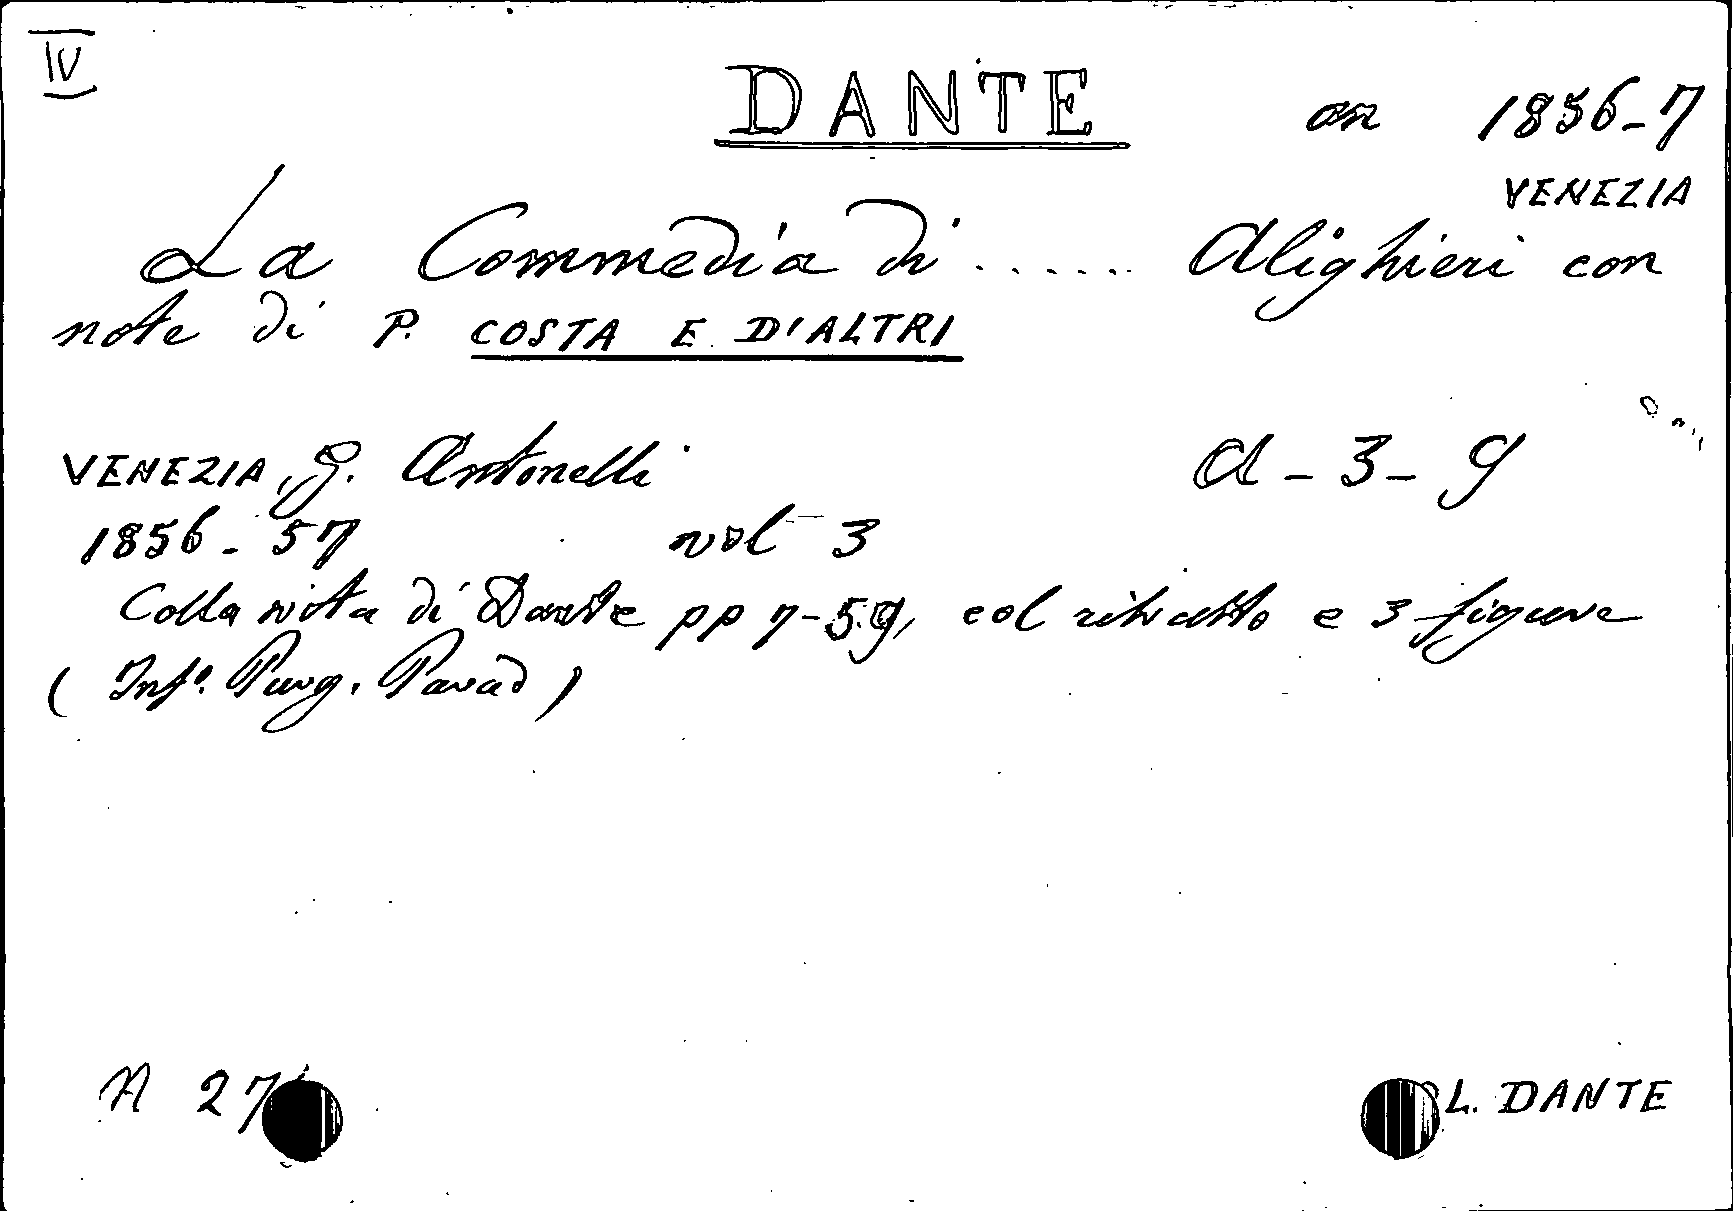 IV
DANTE an 1856-7
VENEZIA
La Commedia di ...... Alighieri con
note di P. COSTA E D'ALTRI
VENEZIA, G. Antonelli A-3-9
1856-57 vol 3
Colla vita di Dante pp 7-59, col ritratto e 3 figure
( Inf°. Purg. Parad )
N 27
L. DANTE